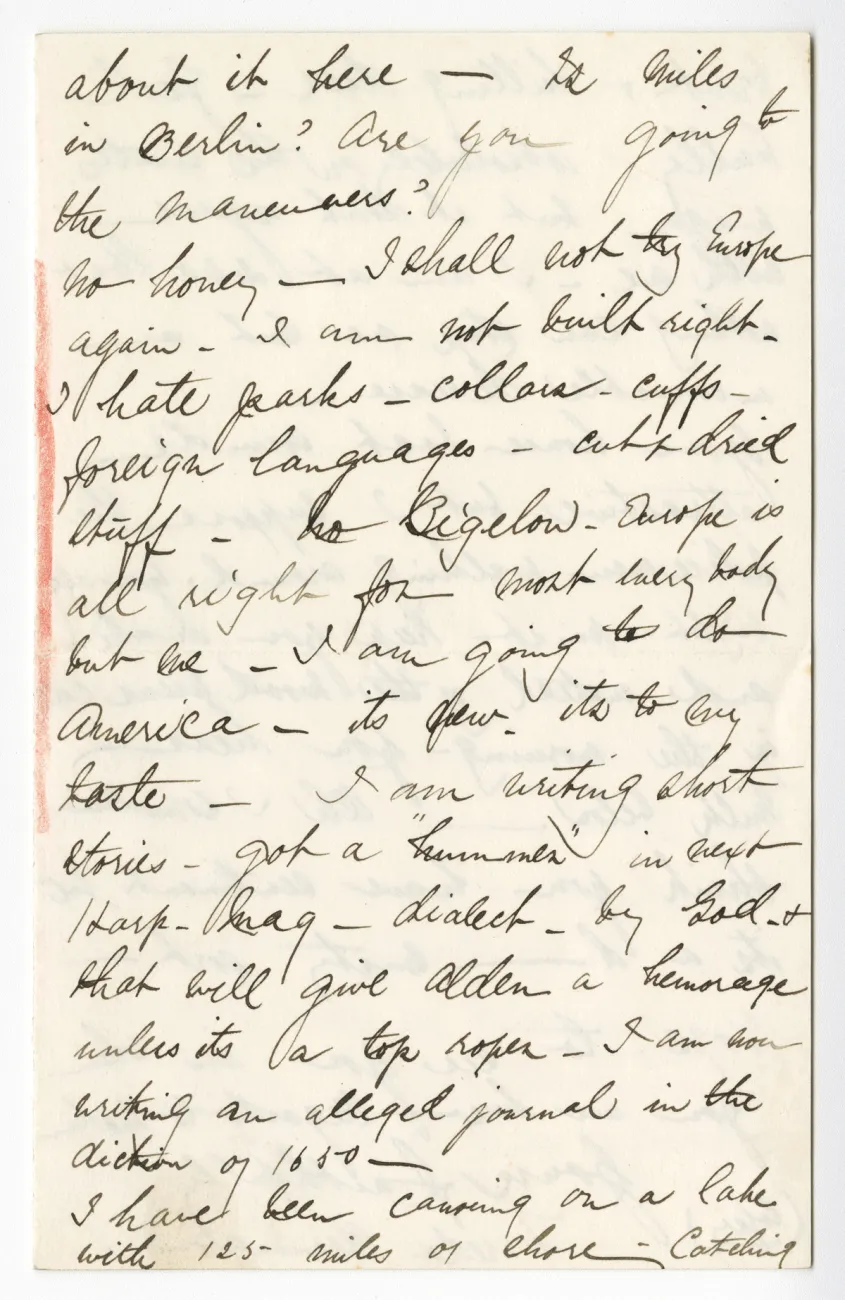 about it here — Is Miles
in Berlin? Are you going to
the maneuvers?
no honey — I shall not try Europe
again - I am not built right -
I hate parks - collars - cuffs -
foreign languages - cut & dried
stuff - no Bigelow - Europe is
all right for most every body
but me - I am going to do
America - its new - its to my
taste - I am writing short
stories - got a "hummer" in next
Harp - Mag - dialect - by God - &
that will give Alden a hemorage
unless its a top roper - I am now
writing an alleged journal in the
diction of 1650 —
I have been canoeing on a lake
with 125 miles of shore - Catching